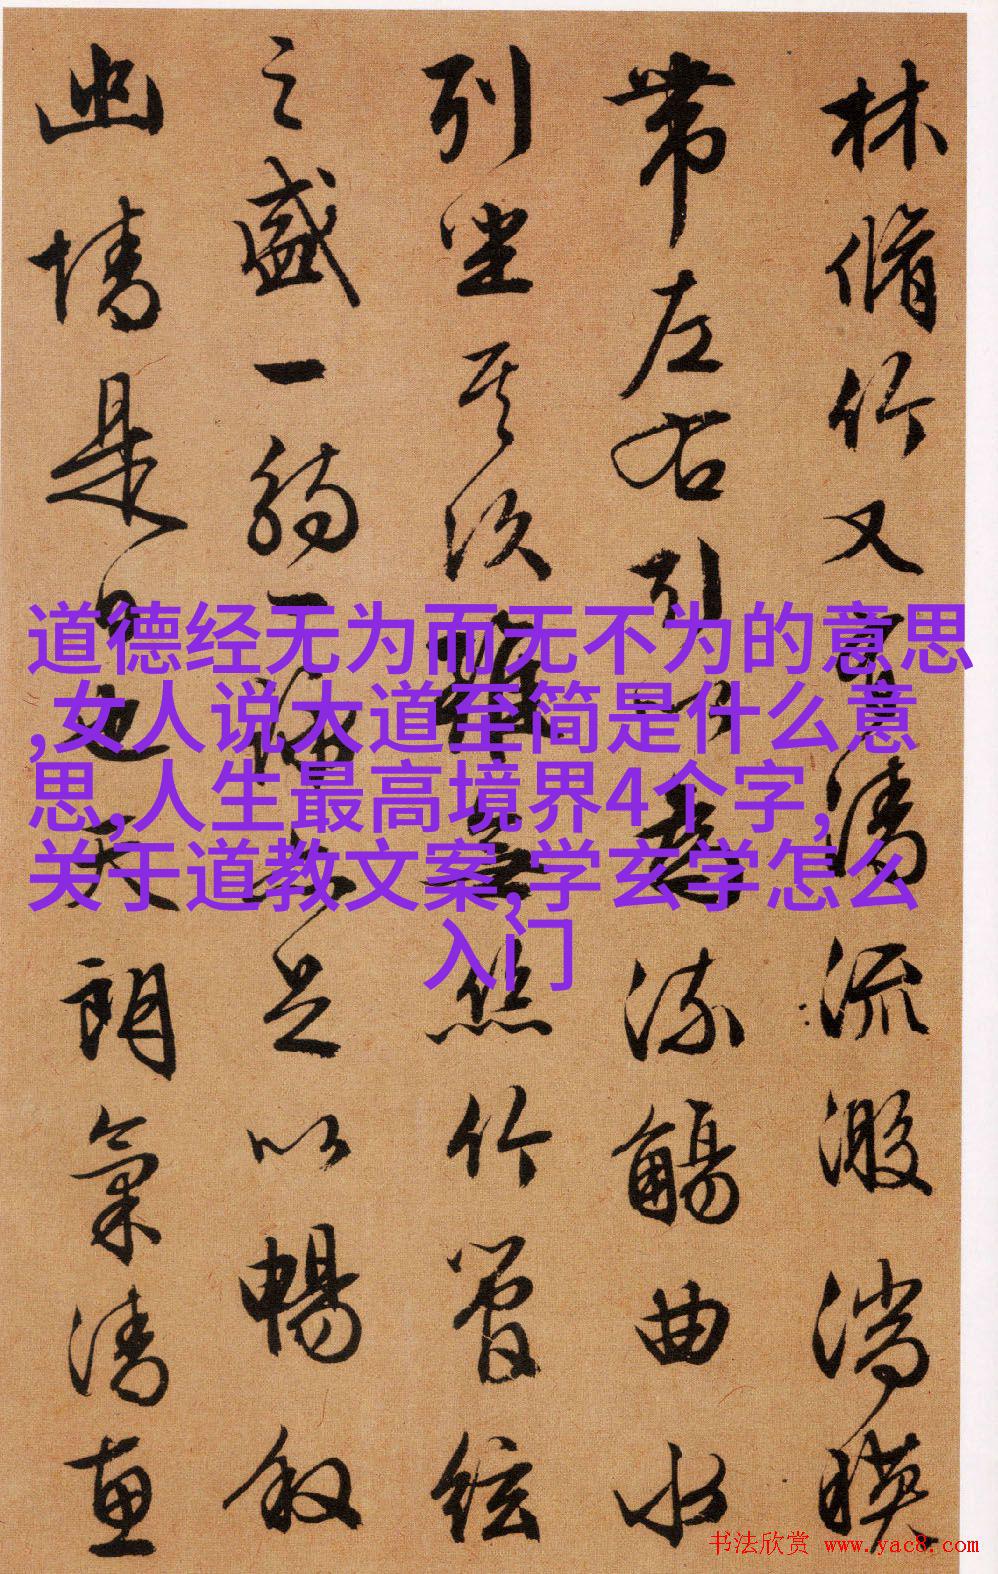 林脩竹又有清流激湍暎
帶左右引以為流觴曲水
列坐其次雖無絲竹管絃
之盛一觴一詠亦足以暢叙
幽情是日也天朗氣清惠
道德经无为而无不为的意思
,女人说大道至简是什么意
思,人生最高境界4个字,
关于道教文案,学玄学怎么
入门
书法欣赏 www.yac8.com